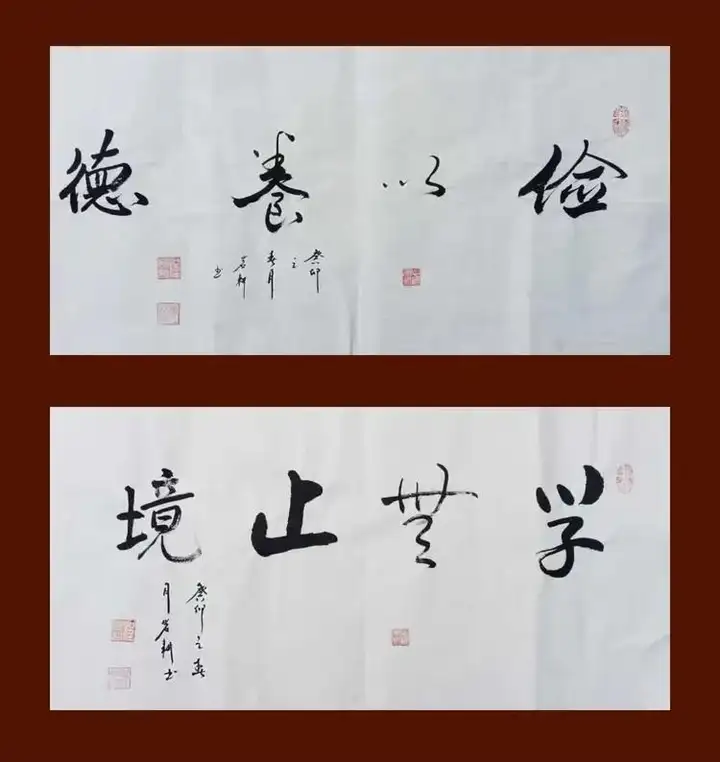 俭以養德
癸卯
之
春月
若耕
书
学無止境
癸卯之春
月若耕书